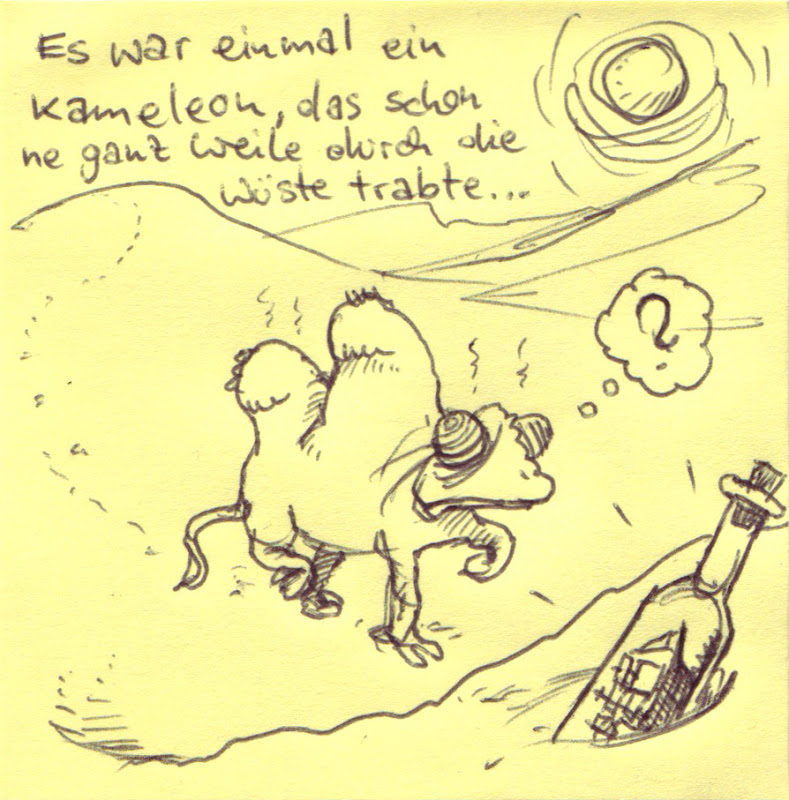 Es war einmal ein
Kameleon, das schon
ne ganz weile durch die
wüste trabte...
?